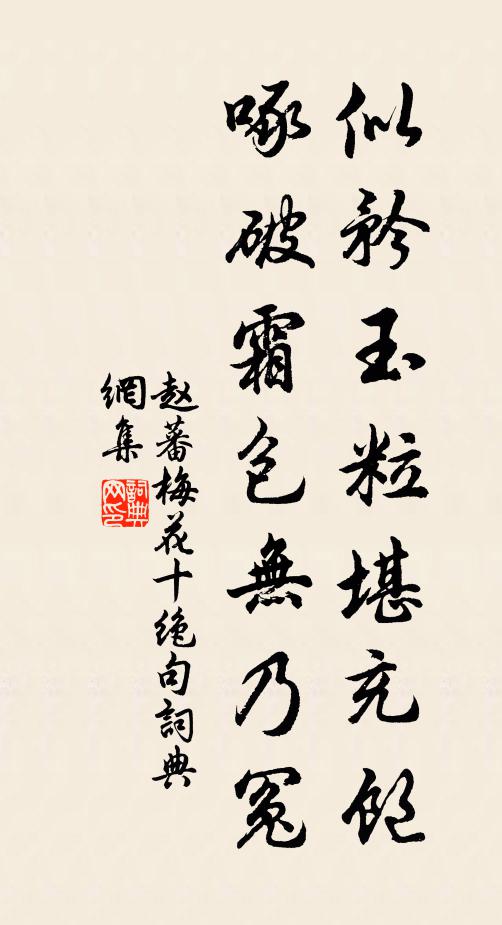 似矜玉粒堪充飽
啄破霜包無乃冤
赵蕃梅花十绝句詞典
網集
詞典網印